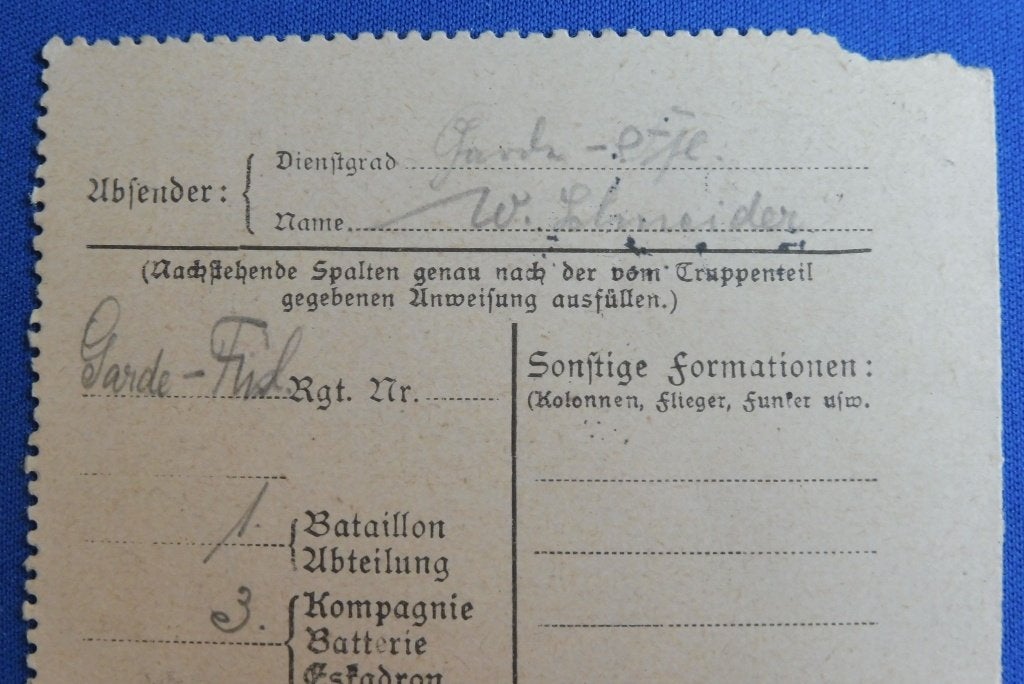 Dienstgrad Garde-
Absender:
Name. W. Schneider
(Nachstehende Spalten genau nach der vom Truppenteil
gegebenen Anweisung ausfüllen.)
Garde-Füs Rgt. Nr.
Sonstige Formationen:
(Kolonnen, Flieger, Funker usw.
1. Bataillon
Abteilung
3. Kompagnie
Batterie
Eskadron